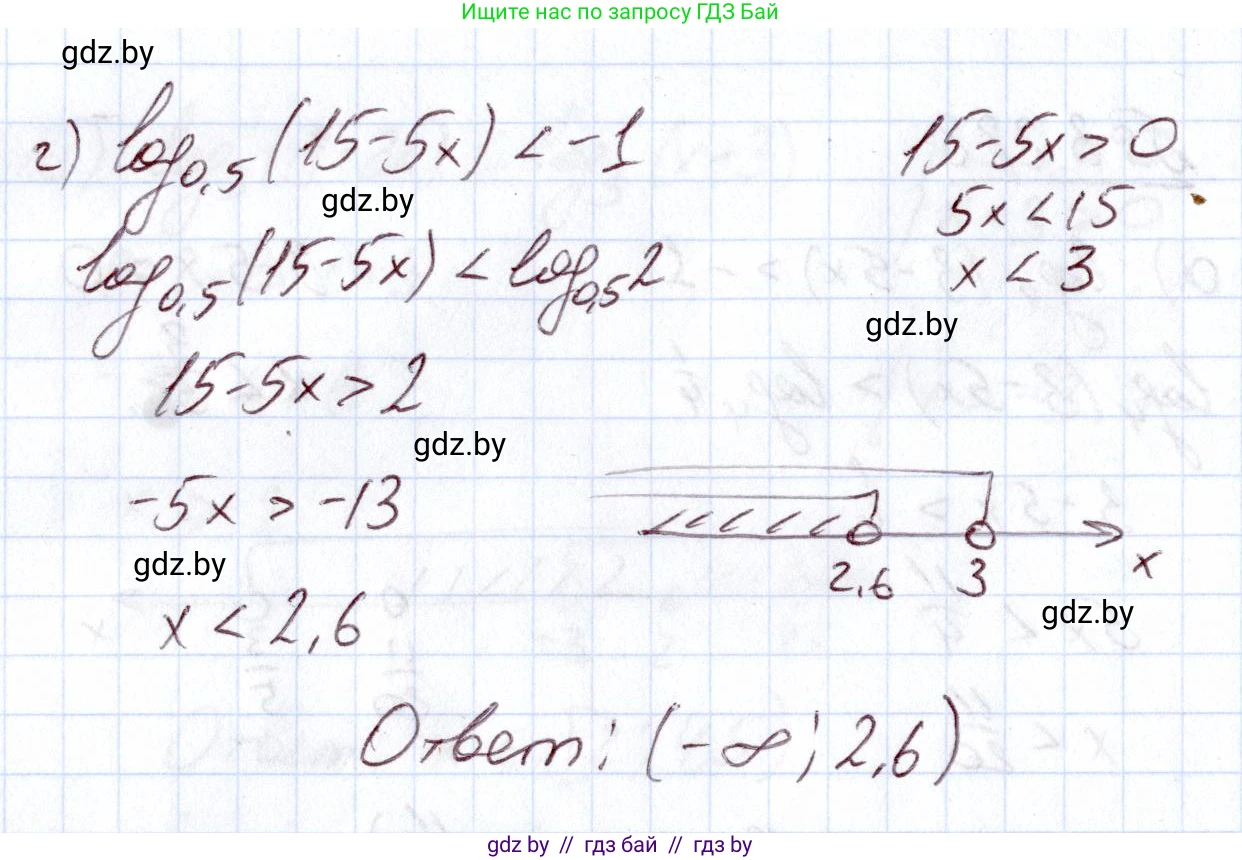 Ищите нас по запросу ГДЗ Бай
gdz.by
г) log₀,₅(15-5x) < -1
15-5x > 0
gdz.by
5x < 15
log₀,₅(15-5x) < log₀,₅2
x < 3
gdz.by
15-5x > 2
gdz.by
-5x > -13
gdz.by
2,6 3 x
x < 2,6
gdz.by
Ответ: (-∞; 2,6)
gdz.by // гдз бай // гдз by